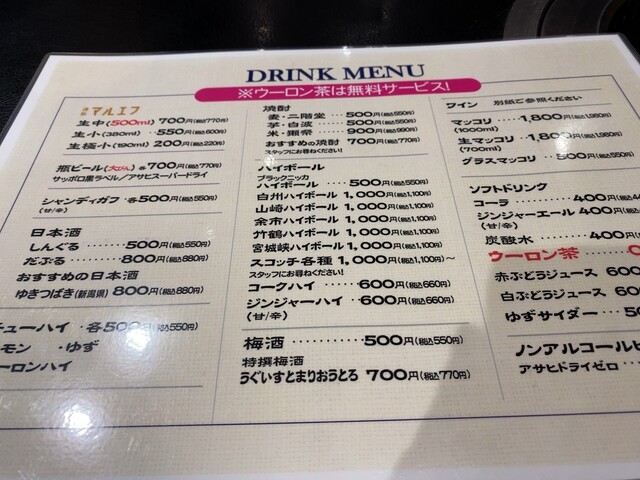 DRINK MENU
※ウーロン茶は無料サービス!
マルエフ
生中(500ml) 700円(税込770円)
生小(380ml) ‥550円(税込600円)
生極小(190ml) 200円(税込220円)
瓶ビール(大びん)各700円(税込770円)
サッポロ黒ラベル/アサヒスーパードライ
シャンディガフ 各500円(税込550円)
(甘/辛)
日本酒
しんぐる ‥‥‥500円(税込550円)
だぶる ‥‥‥‥800円(税込880円)
おすすめの日本酒
ゆきつばき(新潟県) 800円(税込880円)
チューハイ ‥各500円(税込550円)
モン ・ゆず
ーロンハイ
焼酎
麦・二階堂 ‥‥‥500円(税込550円)
芋・白波 ‥‥‥‥500円(税込550円)
米・鄙願 ‥‥‥‥900円(税込990円)
おすすめの焼酎 ‥700円(税込770円)
スタッフにお尋ねください!
ハイボール
ブラックニッカ
ハイボール ‥‥‥500円(税込550円)
白州ハイボール 1,000円(税込1,100円)
山崎ハイボール 1,000円(税込1,100円)
余市ハイボール 1,000円(税込1,100円)
竹鶴ハイボール 1,000円(税込1,100円)
宮城峡ハイボール 1,000円(税込1,100円)
スコッチ各種 1,000円(税込1,100円)～
スタッフにお尋ねください!
コークハイ ‥‥‥600円(税込660円)
ジンジャーハイ ‥600円(税込660円)
(甘/辛)
梅酒 ‥‥‥‥‥‥500円(税込550円)
特撰梅酒
うぐいすとまりおうとろ 700円(税込770円)
ワイン 別紙ご参照ください
マッコリ ‥‥1,800円(税込1,980円)
(1000ml)
生マッコリ ‥1,800円(税込1,980円)
(700ml)
グラスマッコリ ‥500円(税込550円)
ソフトドリンク
コーラ ‥‥‥‥‥400円(税込44
ジンジャーエール 400円(税込
(甘/辛)
炭酸水 ‥‥‥‥‥400円(税込
ウーロン茶 ‥‥‥0
赤ぶどうジュース 600
白ぶどうジュース 60
ゆずサイダー ‥‥
ノンアルコールビ
アサヒドライゼロ ‥‥